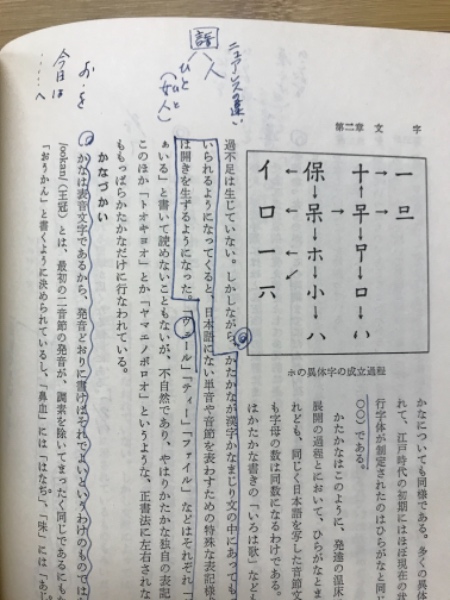 第二章 文 字
一 十 保 イ
旦 早 呆 ロ
甲 ホ 一
ロ 小 六
ハ ハ
ホの異体字の成立過程
かなについても同様である。多くの異体
れて、江戸時代の初期にはほぼ現在の状
行字体が制定されたのはひらがなと同じ
〇〇）である。
かたかなはこのように、発達の温床
展開の過程とにおいて、ひらがなとま
れども、同じく日本語を写した音節文
も字母の数は同数になるわけである。
はかたかな書きの「いろは歌」など
過不足は生じていない。しかしながら、かたかなが漢字かなまじり文の中にあっても
いられるようになってくると、日本語にない単音や音節を表わすための特殊な表記様
は開きを生ずるようになった。「ヴェール」「ティー」「ファイル」などはそれぞれ「
ぁいる」と書いて読めないこともないが、不自然であり、やはりかたかな独自の表記
このほか「トオキヨオ」とか「ヤマエノボロオ」というような、正書法に左右されな
ももっぱらかたかなだけに行なわれている。
かなづかい
かなは表音文字であるから、発音どおりに書けばそれでよいというわけのものでは
/ookan/（王冠）とは、最初の二音節の発音が、調素を除いてまったく同じであるにも
「おうかん」と書くように決められているし、「鼻血」には「はなぢ」、「味」には「あじ
ニュアンスの違い
語
人
ひと
ひと
（女人）
お・を
今日は
……へ